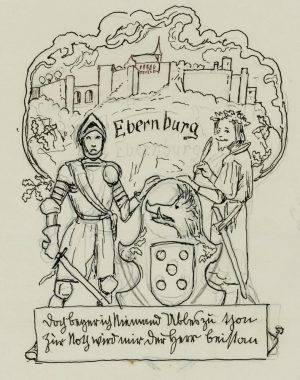 Ebernburg
Ebernburg
Doch beger ich Niemand Ubles zu thon
Zur Noth wird mir der Herr beistan